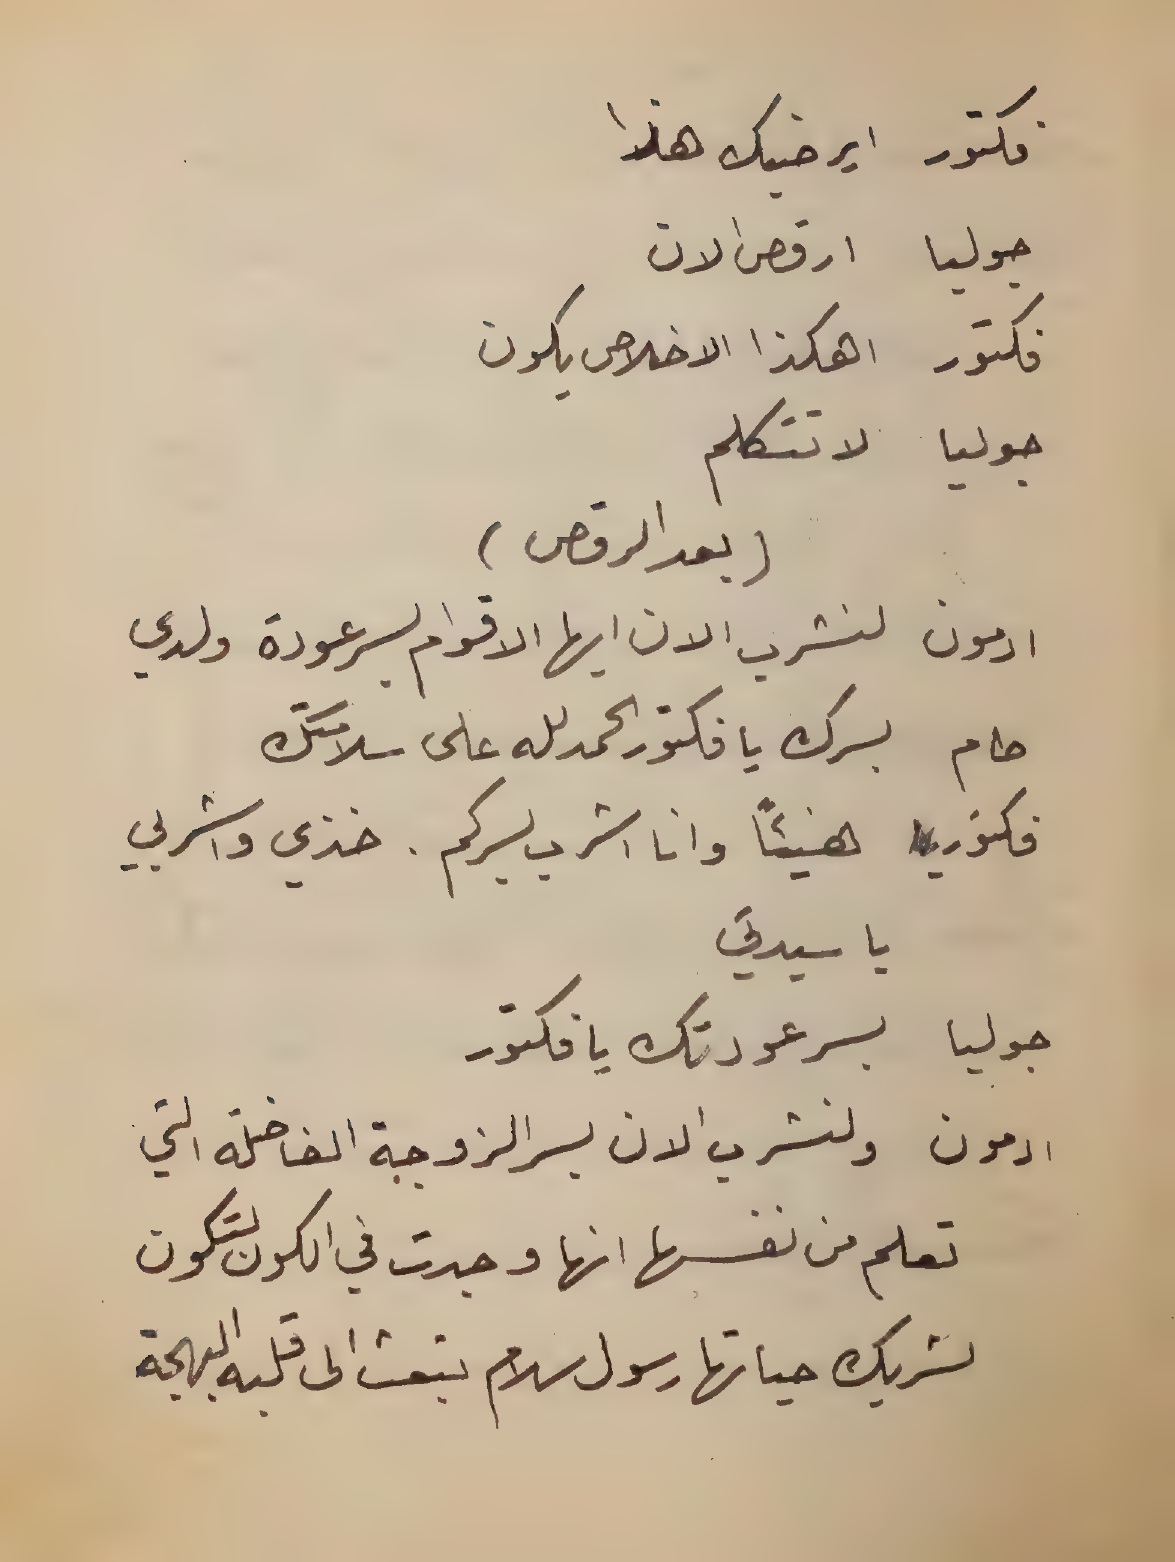 فكتور ايرضيك هذا
جوليا ارقص الان
فكتور اهكذا الاخلاص يكون
جوليا لا تتكلم
(بعد الرقص)
ادمون لنشرب الان ايها الاقوام بسر عودة ولدي
هام بسرك يا فكتور الحمد لله على سلامتك
فكتور هنيئاً وانا اشرب بسركم . خذي واشربي
يا سيدتي
جوليا بسر عودتك يا فكتور
ادمون ولنشرب الان بسر الزوجة الفاضلة التي
تعلم من نفسها انها وجدت في الكون لتكون
لشريك حياتها رسول سلام تبعث الى قلبه البهجة